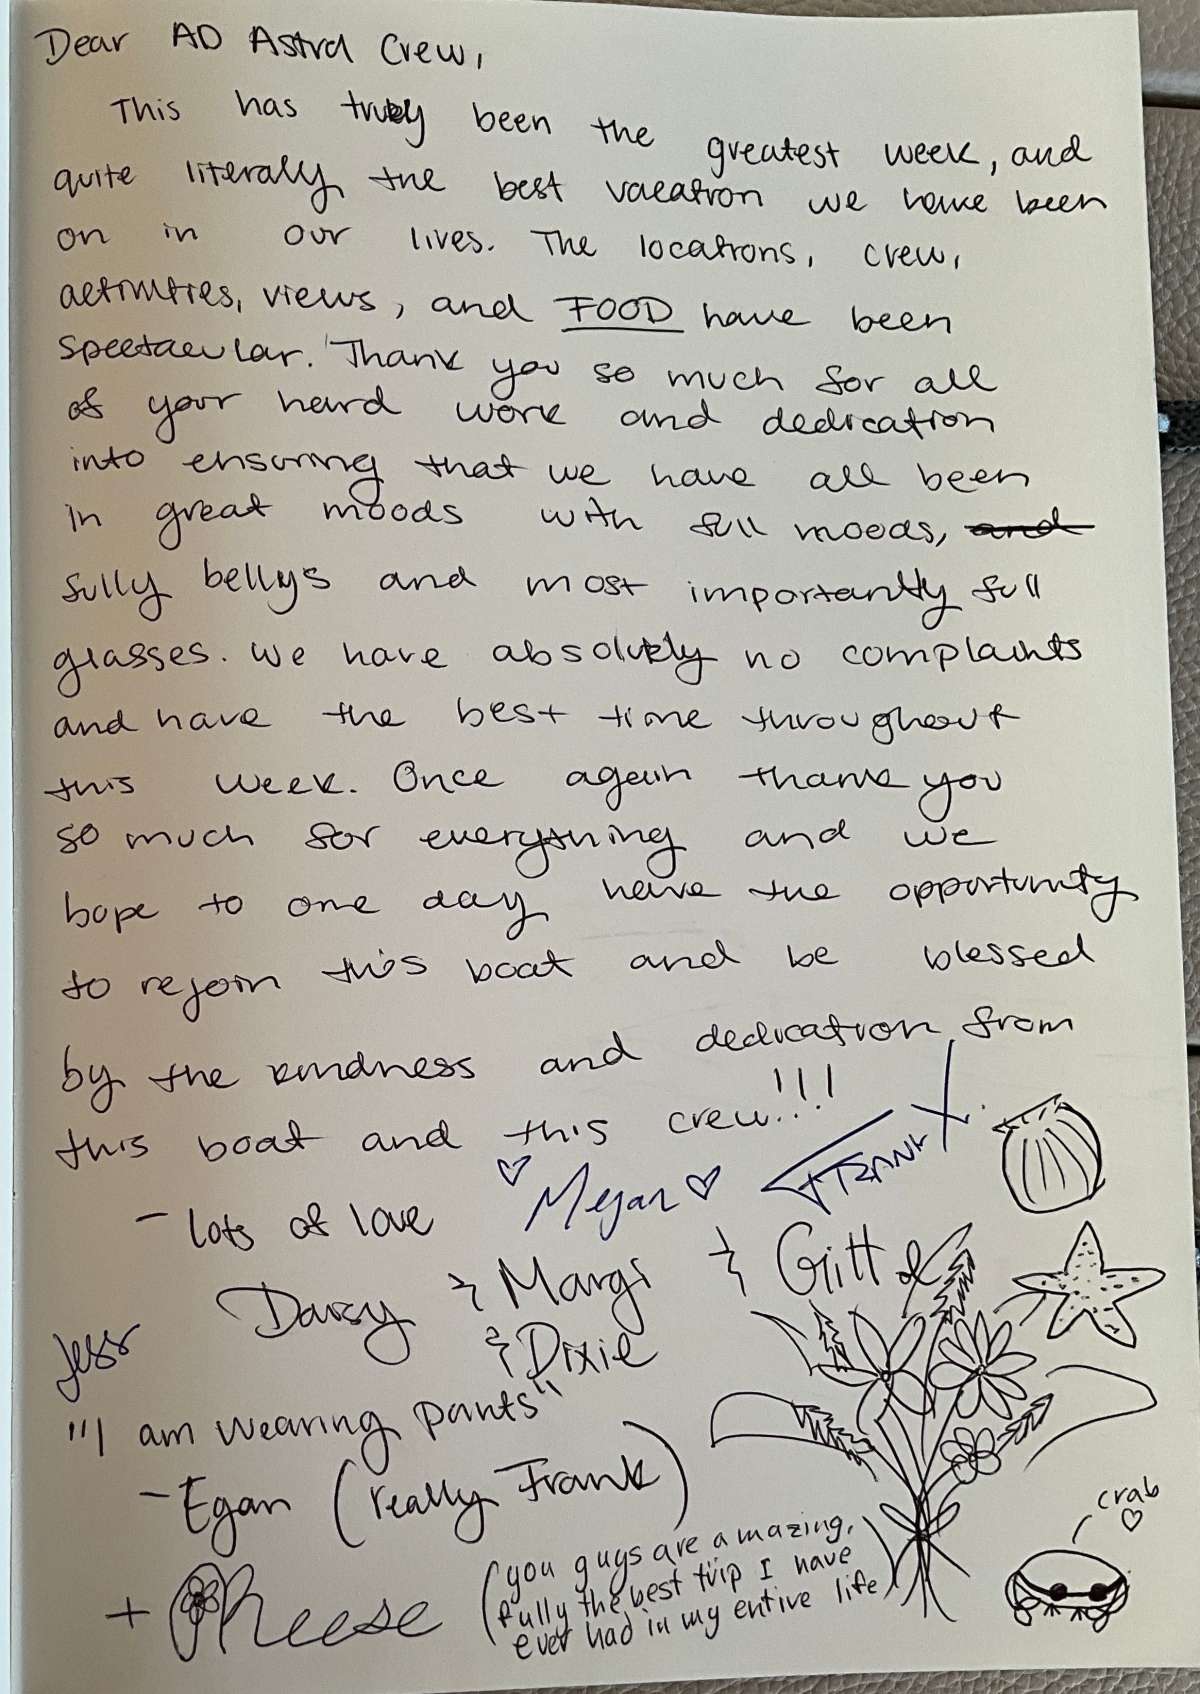 Dear AD Astra Crew,
This has truly been the greatest week, and
quite literally the best vacation we have been
on in our lives. The locations, crew,
activities, views, and FOOD have been
spectacular. Thank you so much for all
of your hard work and dedication
into ensuring that we have all been
in great moods with full moods, and
fully bellys and most importantly full
glasses. We have absolutely no complaints
and have the best time throughout
this week. Once again thank you
so much for everything and we
hope to one day have the opportunity
to rejoin this boat and be blessed
by the kindness and dedication from
this boat and this crew!!!
- lots of love ♡ Megan ♡ FRANK
Daisy & Margi &
Jess & Dixie
"I am wearing pants"
- Egan (really Frank)
+ Rheese (you guys are amazing,
fully the best trip I have
ever had in my entire life)
crab
♡